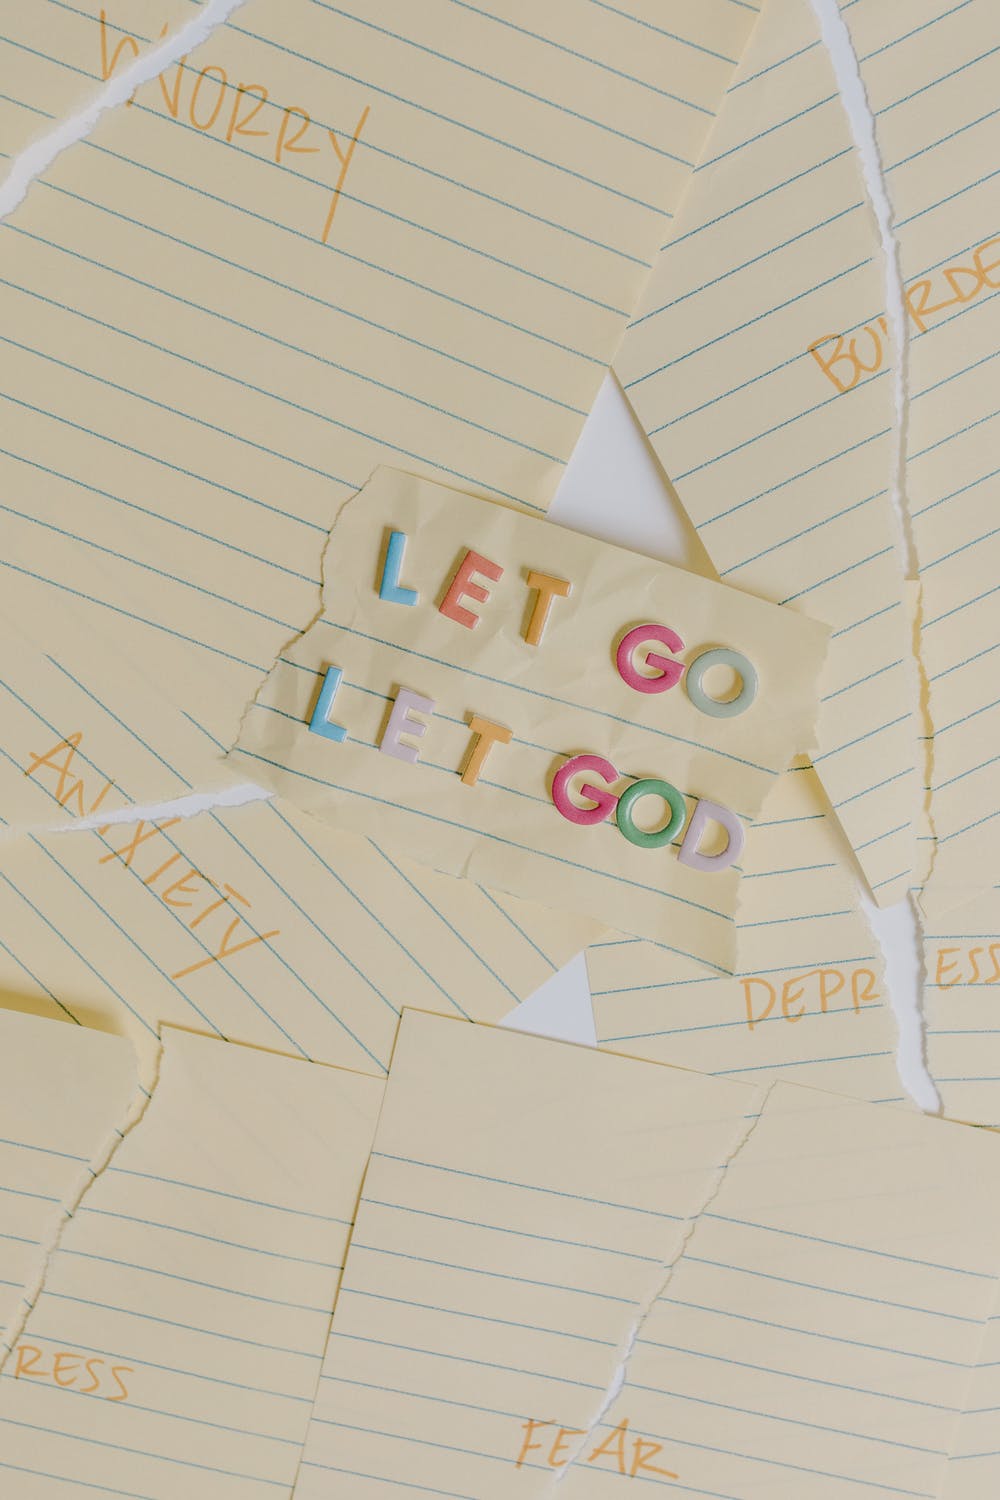 WORRY
BURDE
LET GO
LET GOD
ANXIETY
DEPR ESS
RESS
FEAR